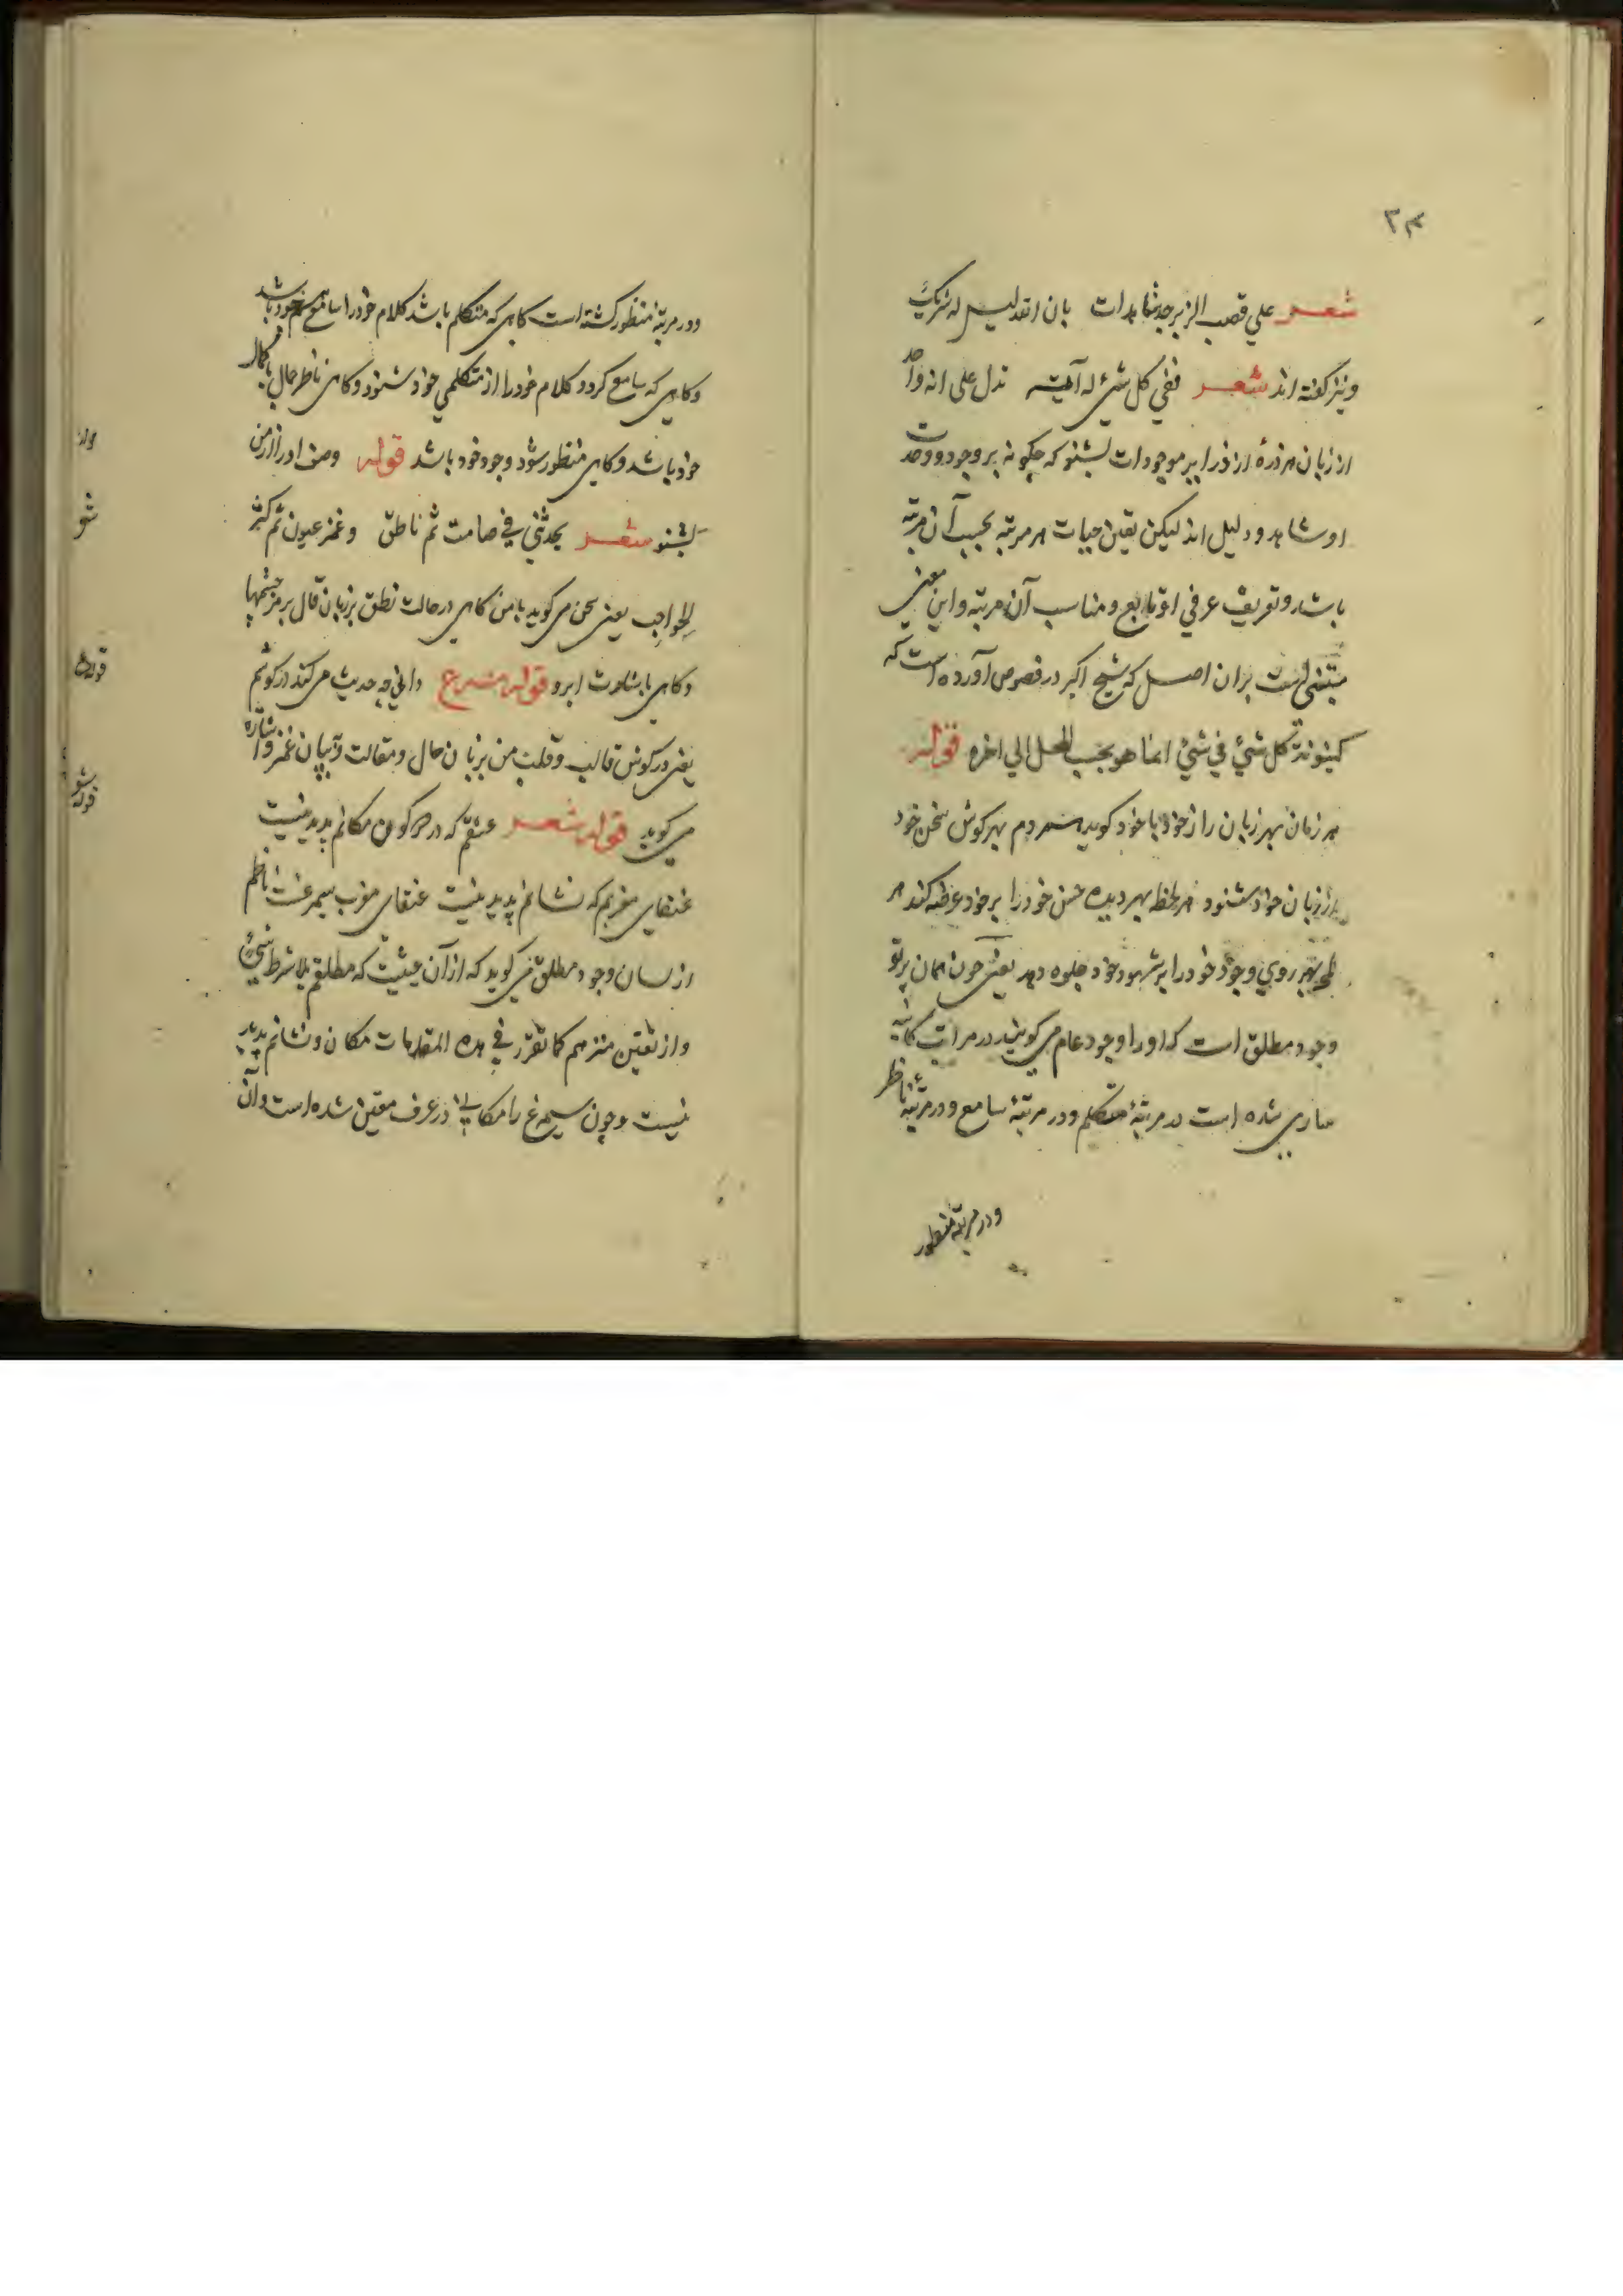 ۳۴
شعر علي قصب الزبرجد شاهدات بان الله ليس له شريك
ونیز کفته اند شعر ففي كل شيء له آية تدل علی انه واحد
از زبان هر ذرهٔ از ذرایر موجودات بشنو که چکونه بر وجود و وحدت
او شاهد و دلیل اند لیکن یقین حیات هر مرتبه بحسب آن مرتبه
باشد و تعریف عرفي او تابع و مناسب آن مرتبه و این معنی
مبتنی است بران اصل که شیخ اکبر در فصوص آورده است که
كينونة كل شيء في شيء انما هو بحسب المحل الي اخره قوله
هر زمان بهر زبان راز خود با خود کوید هر دم بهر کوش سخن خود
از زبان خود شنود هر لحظه بهر دیده حسن خود را بر خود عرضه کند هر
لمحه بهر روي وجود خود را بر شهود خود جلوه دهد یعنی چون همان پرتو
وجود مطلق است که اورا وجود عام می کویند در مراتب کائنه
ساری شده است در مرتبهٔ متکلم و در مرتبهٔ سامع و در مرتبهٔ ناظر
ودر مرتبهٔ منظور
ودر مرتبهٔ منظور کشته است کاهی که متکلم باشد کلام خود را سامع هم خود باشد
وکاهی که سامع کردد کلام خود را از متکلمي خود شنود وکاهی ناظر جمال با کمال
خود باشد وکاهی منظور شود وجود خود باشد قوله وصف اورا از من
بشنو شعر يحدثني في صامت ثم ناطق وغمز عيون ثم كسر
الحواجب یعنی سخن می کوید با من کاهی در حالت نطق بزبان قال برمز چشمها
وکاهی باشارت ابرو قوله مصرع داني چه حدیث می کند در کوشم
یعنی در کوش قالب وقلب من بزبان حال ومقالت وبیان غمز واشاره
می کوید قوله شعر عشقم که در دو کون مکانم پدید نیست
عنقای مغربم که نشانم پدید نیست عنقای مغرب سیمرغست ناظم
از لسان وجود مطلق می کوید که از آن حیثیت که مطلقم بلا شرط شيء
واز تعین منزهم كما تقرر في هذه المقدمات مکان ونشانم پدید
نیست وچون سیمرغ را مکانی در عرف معین شده است وآن